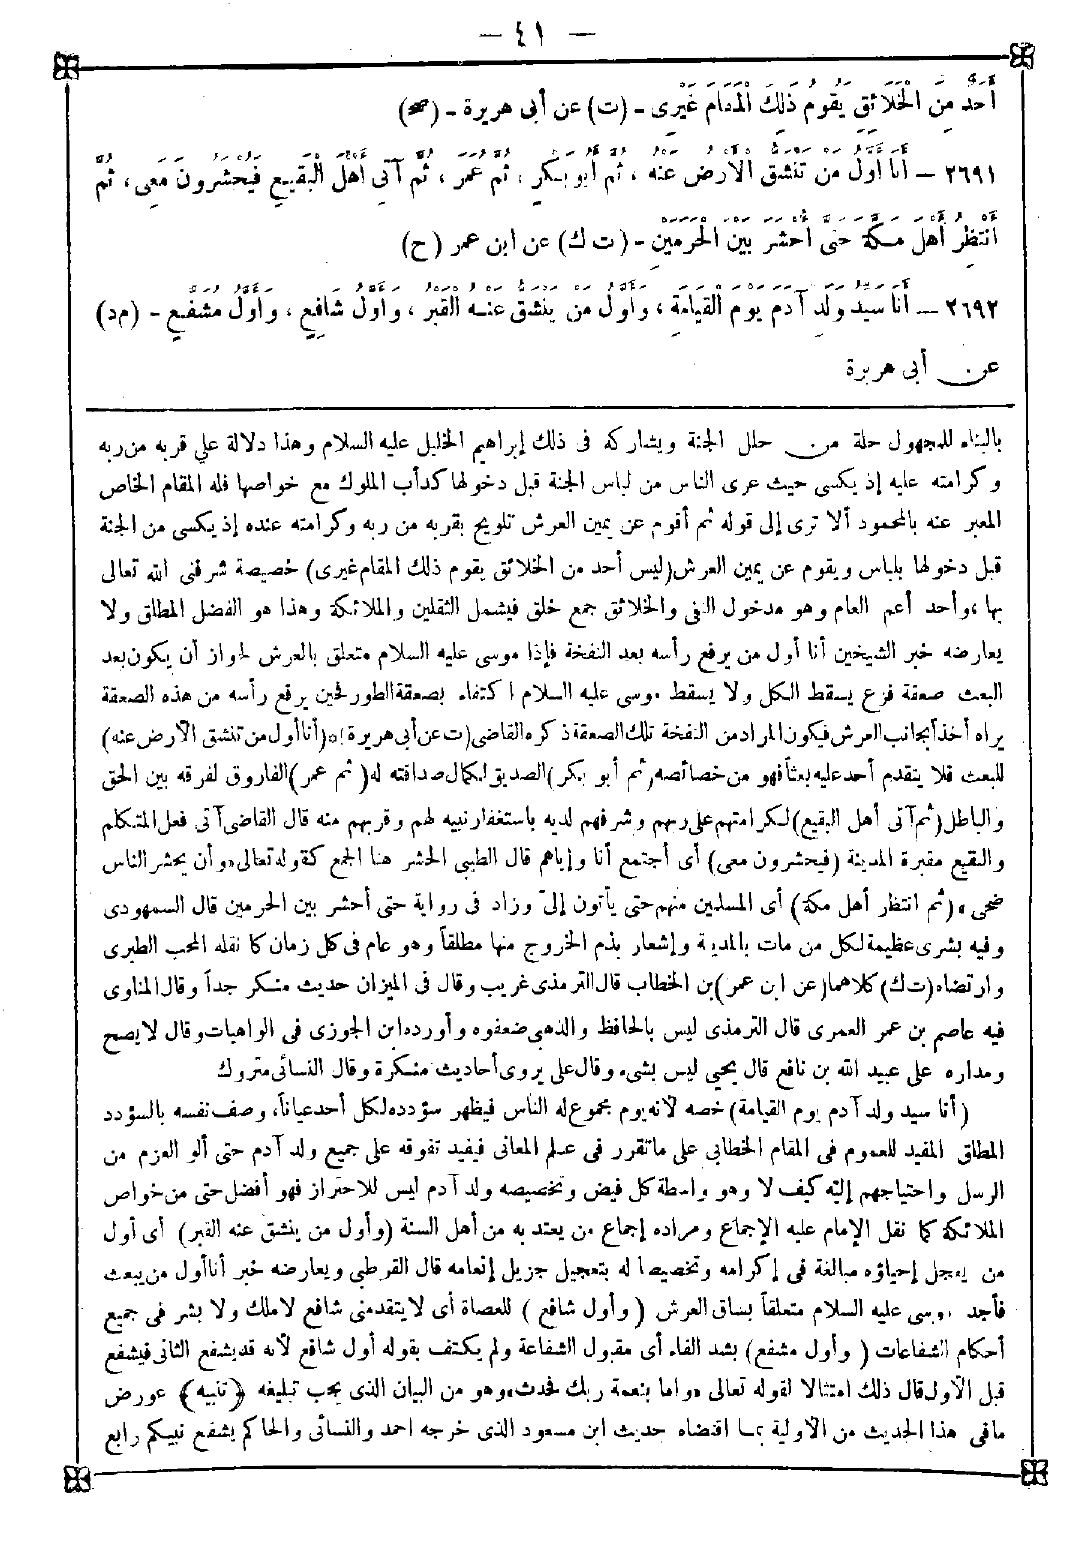 — ٤١ —
أَحَدٌ مِنَ الْخَلَائِقِ يَقُومُ ذَلِكَ الْمَقَامَ غَيْرِى - (ت) عن أبى هريرة - (صح)
٢٦٩١ — أَنَا أَوَّلُ مَنْ تَنْشَقُّ الْأَرْضُ عَنْهُ ، ثُمَّ أَبُو بَكْرٍ ، ثُمَّ عُمَرُ ، ثُمَّ آتِى أَهْلَ الْبَقِيعِ فَيُحْشَرُونَ مَعِى ، ثُمَّ
أَنْتَظِرُ أَهْلَ مَكَّةَ حَتَّى أُحْشَرَ بَيْنَ الْحَرَمَيْنِ - (ت ك) عن ابن عمر (ح)
٢٦٩٢ — أَنَا سَيِّدُ وَلَدِ آدَمَ يَوْمَ الْقِيَامَةِ ، وَأَوَّلُ مَنْ يَنْشَقُّ عَنْهُ الْقَبْرُ ، وَأَوَّلُ شَافِعٍ ، وَأَوَّلُ مُشَفَّعٍ - (م د)
عن أبى هريرة
بالبناء للمجهول حلة من حلل الجنة ويشاركه فى ذلك إبراهيم الخليل عليه السلام وهذا دلالة على قربه من ربه
وكرامته عليه إذ يكسى حيث عرى الناس من لباس الجنة قبل دخولها كدأب الملوك مع خواصها فله المقام الخاص
المعبر عنه بالمحمود ألا ترى إلى قوله ثم أقوم عن يمين العرش تلويح بقربه من ربه وكرامته عنده إذ يكسى من الجنة
قبل دخولها بلباس ويقوم عن يمين العرش (ليس أحد من الخلائق يقوم ذلك المقام غيرى) خصيصة شرفنى الله تعالى
بها ، وأحد أعم العام وهو مدخول النفى والخلائق جمع خلق فيشمل الثقلين والملائكة وهذا هو الفضل المطلق ولا
يعارضه خبر الشيخين أنا أول من يرفع رأسه بعد النفخة فإذا موسى عليه السلام متعلق بالعرش لجواز أن يكون بعد
البعث صعقة فزع يسقط الكل ولا يسقط موسى عليه السلام اكتفاء بصعقة الطور فحين يرفع رأسه من هذه الصعقة
يراه أخذ بجانب العرش فيكون المراد من النفخة تلك الصعقة ذكره القاضى (ت عن أبى هريرة)*(أنا أول من تنشق الأرض عنه)
للبعث فلا يتقدم أحد عليه بعثا فهو من خصائصه (ثم أبو بكر) الصديق لكمال صداقته له (ثم عمر) الفاروق لفرقه بين الحق
والباطل (ثم آتى أهل البقيع) لكرامتهم على ربهم وشرفهم لديه باستغفار نبيه لهم وقربهم منه قال القاضى آتى فعل المتكلم
والبقيع مقبرة المدينة (فيحشرون معى) أى أجتمع أنا وإياهم قال الطيبى الحشر هنا الجمع كقوله تعالى «وأن يحشر الناس
ضحى» (ثم انتظر أهل مكة) أى المسلمين منهم حتى يأتون إلىّ وزاد فى رواية حتى أحشر بين الحرمين قال السمهودى
وفيه بشرى عظيمة لكل من مات بالمدينة وإشعار بذم الخروج منها مطلقاً وهو عام فى كل زمان كما نقله المحب الطبرى
وارتضاه (ت ك) كلاهما (عن ابن عمر) بن الخطاب قال الترمذى غريب وقال فى الميزان حديث منكر جداً وقال المناوى
فيه عاصم بن عمر العمرى قال الترمذى ليس بالحافظ والذهبى ضعفوه وأورده ابن الجوزى فى الواهيات وقال لا يصح
ومداره على عبيد الله بن نافع قال يحيى ليس بشىء وقال على يروى أحاديث منكرة وقال النسائى متروك
(أنا سيد ولد آدم يوم القيامة) خصه لأنه يوم مجموع له الناس فيظهر سؤدده لكل أحد عياناً ، وصف نفسه بالسؤدد
المطلق المفيد للعموم فى المقام الخطابى على ما تقرر فى علم المعانى فيفيد تفوقه على جميع ولد آدم حتى ألو العزم من
الرسل واحتياجهم إليه كيف لا وهو واسطة كل فيض وتخصيصه ولد آدم ليس للاحتراز فهو أفضل حتى من خواص
الملائكة كما نقل الإمام عليه الإجماع ومراده إجماع من يعتد به من أهل السنة (وأول من ينشق عنه القبر) أى أول
من يعجل إحياؤه مبالغة فى إكرامه وتخصيصا له بتعجيل جزيل إنعامه قال القرطبى ويعارضه خبر أنا أول من يبعث
فأجد موسى عليه السلام متعلقاً بساق العرش (وأول شافع) للعصاة أى لا يتقدمنى شافع لا ملك ولا بشر فى جميع
أحكام الشفاعات (وأول مشفع) بشد الفاء أى مقبول الشفاعة ولم يكتف بقوله أول شافع لأنه قد يشفع الثانى فيشفع
قبل الأول قال ذلك امتثالا لقوله تعالى «وأما بنعمة ربك فحدث» وهو من البيان الذى يجب تبليغه (تنبيه) عورض
ما فى هذا الحديث من الأولية بما اقتضاه حديث ابن مسعود الذى خرجه احمد والنسائى والحاكم يشفع نبيكم رابع